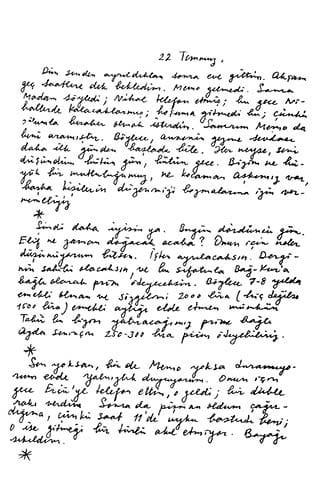 22 Temmuz,
Dün senden ayrıldıktan sonra eve gittim. Akşam
geç saatlere dek bekledim. Memo gelmedi. Sonra
Madam söyledi; Nihal telefon etmiş; bu gece Ni-
hallerde kalacaklarmış; hoşuma gitmedi bu; çünkü
onunla beraber olmak isterdin. Sanırım Memo da
beni aramıştır. Böylece, annenin gözüne senden
daha ilk günden başlade bile. Her neyse, seni
düşündüm bütün gün, bütün gece. Bizim ne bü-
yük bir mutluluğumuz, ne kocaman aşkımız var,
başka kişilerin düzenimizi bozmalarına izin ver-
memeliyiz
*
Şimdi daha iyisin ya. Bugün dördüncü gün.
Elif ne zaman doğacak acaba? Onun için neler
düşünüyorum bilsen. İşten ayrılacaksın. Dergi-
nin sahibi olacaksın, ve bu sıfatınla Bağ-Kur'a
bağlı olarak prim ödeyeceksin. Böylece 7-8 yılda
emekli olman ve sizgelimi 2000 lira (hiç değilse
1500 lira) emekli aylığı elde etmen mümkün
Tabii bu bizim yatıracağımız prime bağlı
Ayda senin için 250-300 lira prim ödeyebiliriz.
*
Sen yoksan, bir de Memo yoksa duramıyo-
rum evde. Yalnızlık duyuyorum. Onun için
gece Ercü'ye telefon ettim, o geldi; bir duble
rakı verdim. Sonra da pişman oldum çağır-
dığıma, çünkü saat 11'de uyku bastırdı beni;
o ise gitmeği bir türlü akıl etmiyor. Bayağı
sıkıldım.
*